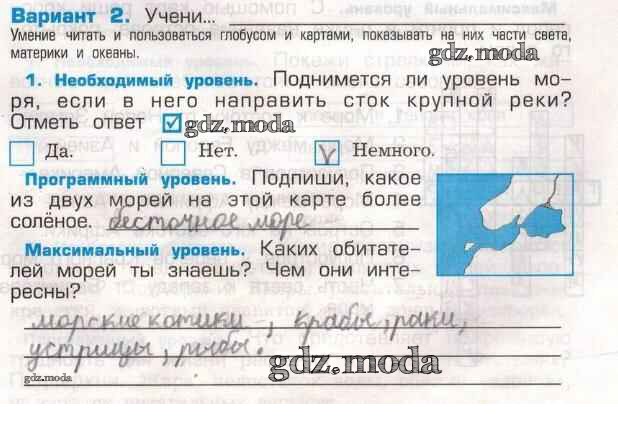 Вариант 2. Учени...
Умение читать и пользоваться глобусом и картами, показывать на них части света,
материки и океаны.
gdz.moda
1. Необходимый уровень. Поднимется ли уровень мо-
ря, если в него направить сток крупной реки?
Отметь ответ ☑ gdz.moda
Да. Нет. V Немного.
Программный уровень. Подпиши, какое
из двух морей на этой карте более
солёное. бесточное море
Максимальный уровень. Каких обитате-
лей морей ты знаешь? Чем они инте-
ресны?
морские котики, крабы, раки,
устрицы, рыбы.
gdz.moda
gdz.moda